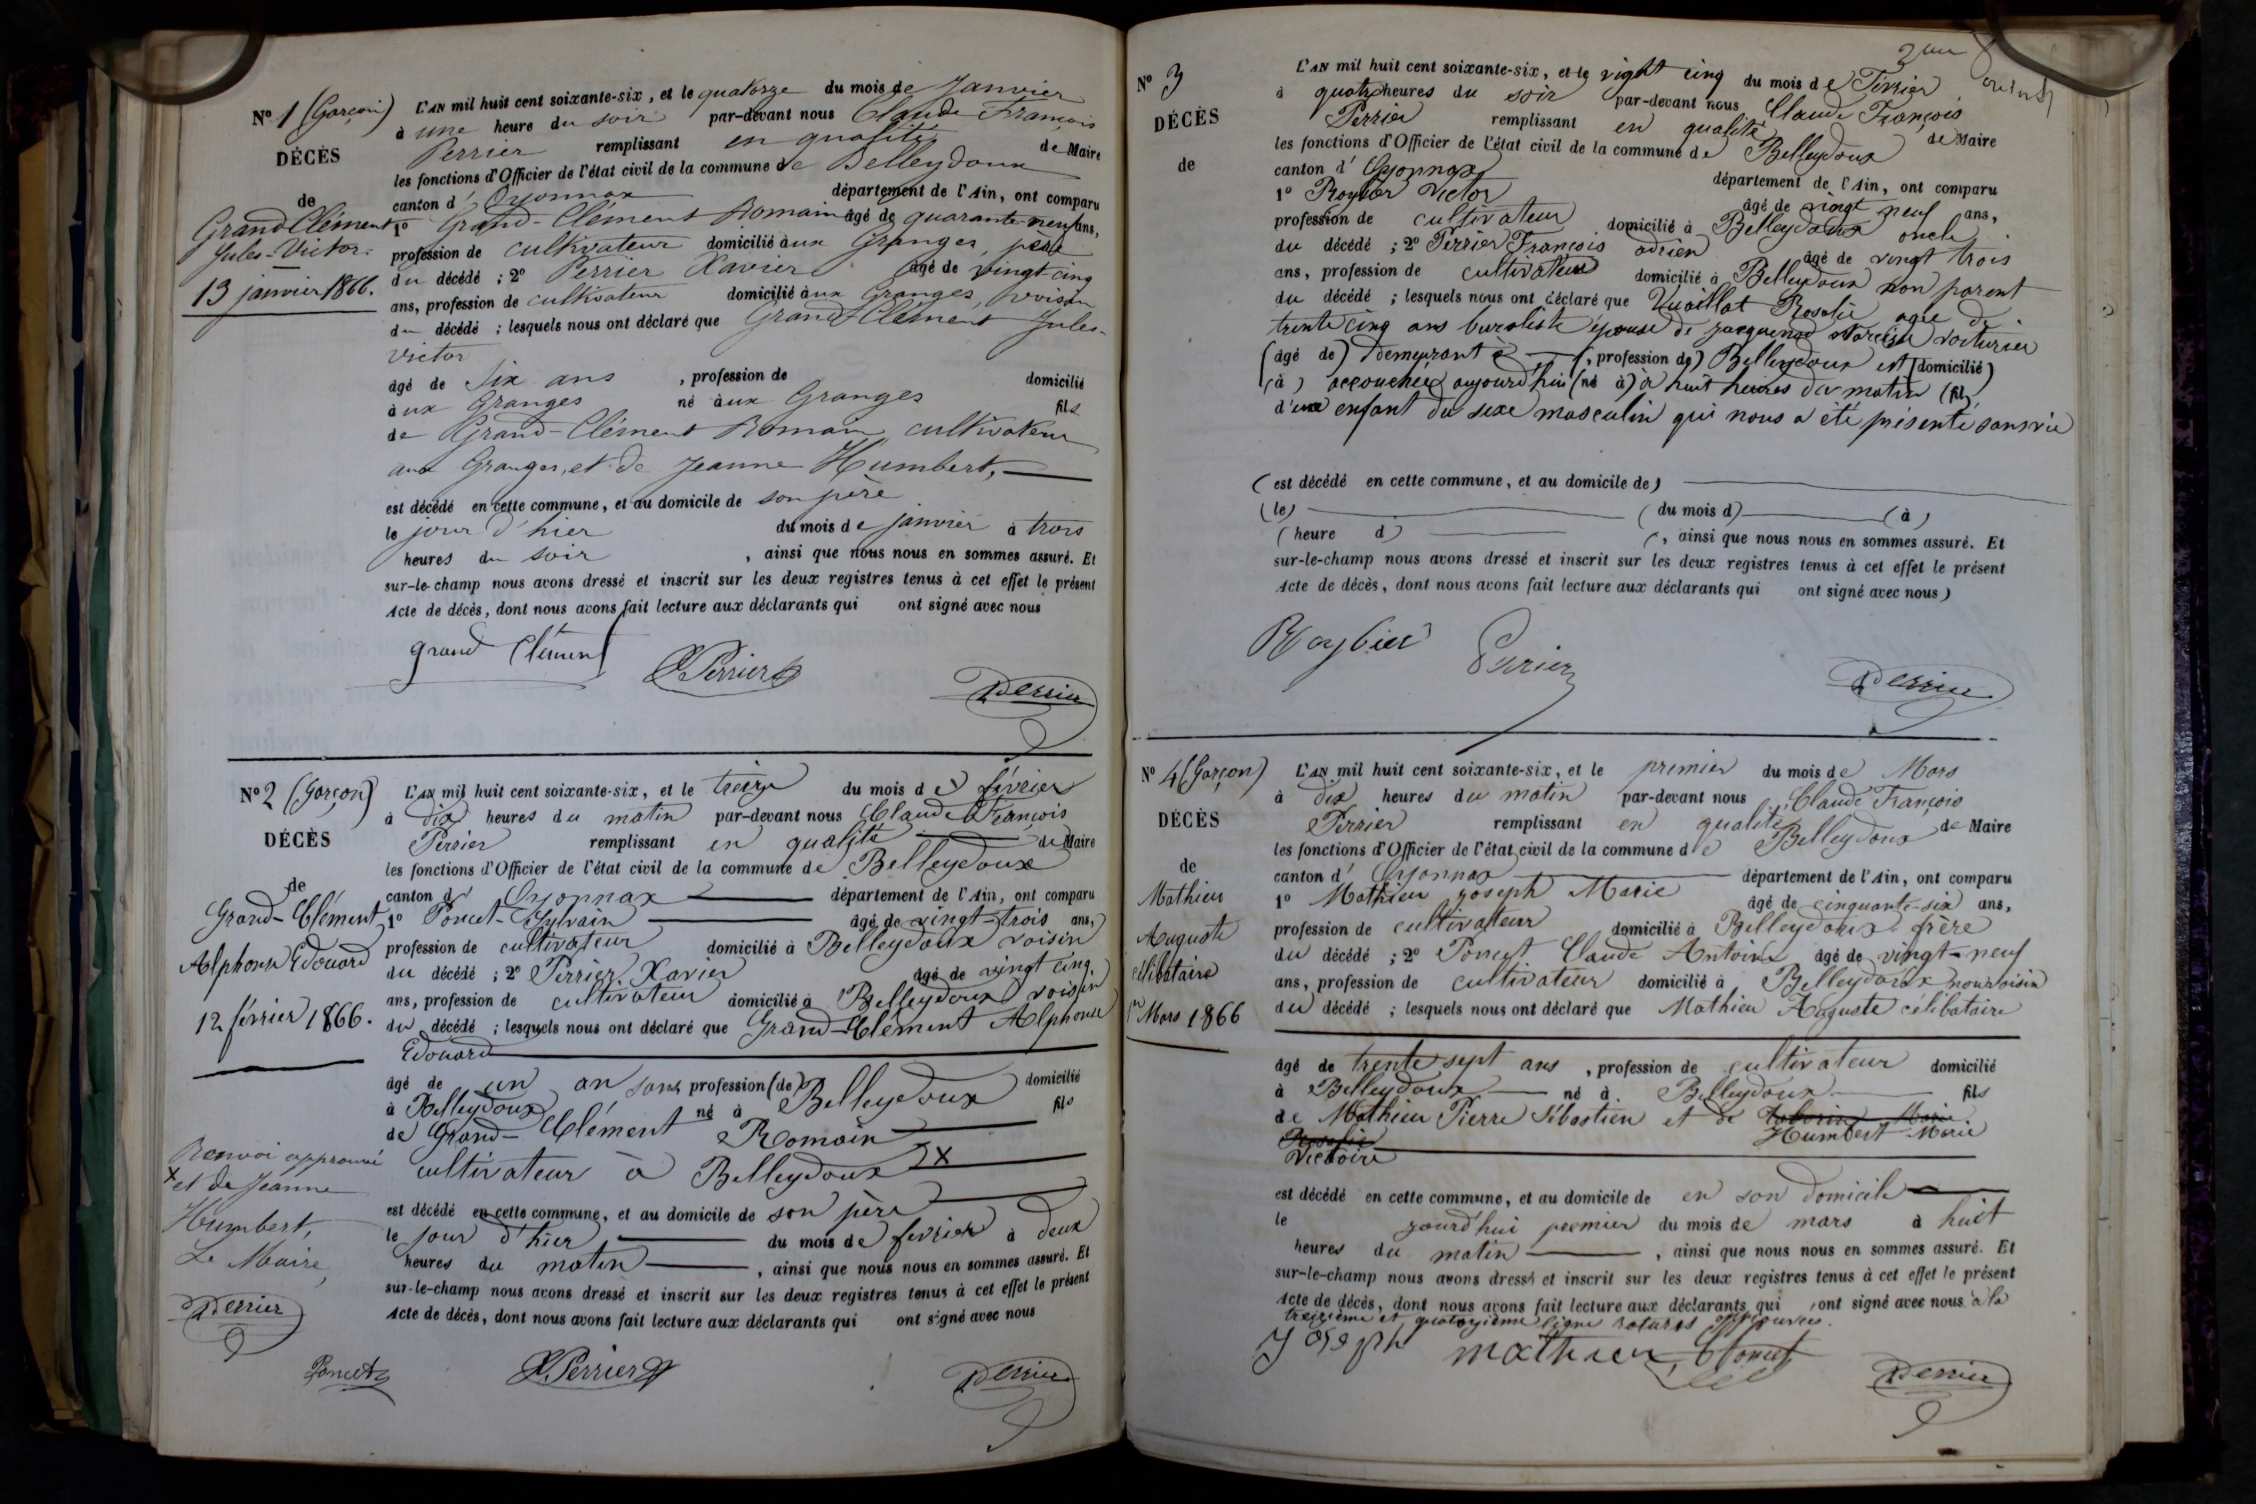 Nº 1 (Garçon)
DÉCÈS
de
Grand Clément
Jules-Victor.
13 janvier 1866.
L'AN mil huit cent soixante-six, et le quatorze du mois de Janvier
à une heure du soir par-devant nous Claude François
Perrier remplissant en qualité de Maire
les fonctions d'Officier de l'état civil de la commune de Belleydoux
canton d'Oyonnax département de l'Ain, ont comparu
1º Grand-Clément Romain âgé de quarante-neuf ans,
profession de cultivateur domicilié aux Granges, père
du décédé ; 2º Perrier Xavier âgé de vingt cinq
ans, profession de cultivateur domicilié aux Granges, voisin
du décédé ; lesquels nous ont déclaré que Grand-Clément Jules-
Victor
âgé de six ans , profession de domicilié
aux Granges né aux Granges fils
de Grand-Clément Romain cultivateur
aux Granges, et de Jeanne Humbert,
est décédé en cette commune, et au domicile de son père
le jour d'hier du mois de janvier à trois
heures du soir , ainsi que nous nous en sommes assuré. Et
sur-le-champ nous avons dressé et inscrit sur les deux registres tenus à cet effet le présent
Acte de décès, dont nous avons fait lecture aux déclarants qui ont signé avec nous
grand Clément X Perrier Perrier
Nº 2 (Garçon)
DÉCÈS
de
Grand-Clément
Alphonse Edouard
12 février 1866.
Renvoi approuvé
x et de Jeanne
Humbert,
Le Maire,
Perrier
L'AN mil huit cent soixante-six, et le treize du mois de février
à dix heures du matin par-devant nous Claude François
Perrier remplissant en qualité de Maire
les fonctions d'Officier de l'état civil de la commune de Belleydoux
canton d' Oyonnax département de l'Ain, ont comparu
1º Poncet-Sylvain âgé de vingt-trois ans,
profession de cultivateur domicilié à Belleydoux voisin
du décédé ; 2º Perrier Xavier âgé de vingt cinq
ans, profession de cultivateur domicilié à Belleydoux voisin
du décédé ; lesquels nous ont déclaré que Grand-Clément Alphonse
Edouard
âgé de un an sans profession (de) domicilié
à Belleydoux né à Belleydoux fils
de Grand-Clément Romain
cultivateur à Belleydoux x
est décédé en cette commune, et au domicile de son père
le jour d'hier du mois de février à deux
heures du matin , ainsi que nous nous en sommes assuré. Et
sur-le-champ nous avons dressé et inscrit sur les deux registres tenus à cet effet le présent
Acte de décès, dont nous avons fait lecture aux déclarants qui ont signé avec nous
Poncet X Perrier Perrier
Nº 3
DÉCÈS
de
L'AN mil huit cent soixante-six, et le vight cinq du mois de Février
à quatre heures du soir par-devant nous Claude François
Perrier remplissant en qualité de Maire
les fonctions d'Officier de l'état civil de la commune de Belleydoux
canton d' Oyonnax département de l'Ain, ont comparu
1º Roybier Victor âgé de vingt neuf ans,
profession de cultivateur domicilié à Belleydoux oncle
du décédé ; 2º Perrier François adrien âgé de vingt trois
ans, profession de cultivateur domicilié à Belleydoux non parent
du décédé ; lesquels nous ont déclaré que Vuaillat Rosalie agée de
trente cinq ans buraliste épouse de voiturier
(âgé de) demeurant à (, profession de) Belleydoux est (domicilié)
(à) accouchée aujourd'hui (né à) à huit heures du matin (fils)
d'un enfant du sexe masculin qui nous a été présenté sans vie
(est décédé en cette commune, et au domicile de)
(le) (du mois d) (à)
(heure d) (, ainsi que nous nous en sommes assuré. Et
sur-le-champ nous avons dressé et inscrit sur les deux registres tenus à cet effet le présent
Acte de décès, dont nous avons fait lecture aux déclarants qui ont signé avec nous)
Roybier Perrier Perrier
Nº 4 (Garçon)
DÉCÈS
de
Mathieu
Auguste
célibataire
1er Mars 1866
L'AN mil huit cent soixante-six, et le premier du mois de Mars
à dix heures du matin par-devant nous Claude François
Perrier remplissant en qualité de Maire
les fonctions d'Officier de l'état civil de la commune de Belleydoux
canton d' Oyonnax département de l'Ain, ont comparu
1º Mathieu Joseph Marie âgé de cinquante-six ans,
profession de cultivateur domicilié à Belleydoux frère
du décédé ; 2º Poncet Claude Antoine âgé de vingt-neuf
ans, profession de cultivateur domicilié à Belleydoux voisin
du décédé ; lesquels nous ont déclaré que Mathieu Auguste célibataire
âgé de trente sept ans , profession de cultivateur domicilié
à Belleydoux né à Belleydoux fils
de Mathieu Pierre Sébastien et de Marie
Humbert Marie
Victoire
est décédé en cette commune, et au domicile de en son domicile
le jourd'hui premier du mois de mars à huit
heures du matin , ainsi que nous nous en sommes assuré. Et
sur-le-champ nous avons dressé et inscrit sur les deux registres tenus à cet effet le présent
Acte de décès, dont nous avons fait lecture aux déclarants qui ont signé avec nous à la
treizième et quatorzième ligne ratures approuvées.
Joseph mathieu Poncet Perrier